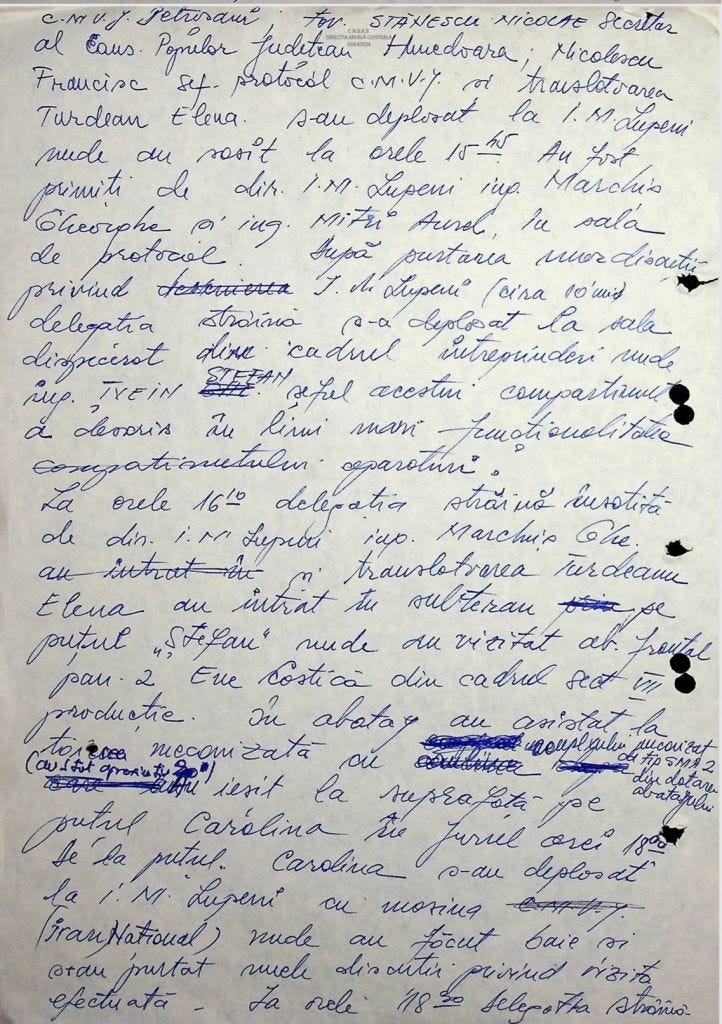 C.M.V.J. Petroșani, Tov. STĂNESCU NICOLAE secretar
C.N.S.A.S.
DIRECȚIA ARHIVĂ CENTRALĂ
al Cons. Popular Județean Hunedoara, Nicolescu
Francisc șef protocol C.M.V.J. și translatoarea
Turdean Elena. s-au deplasat la I.M. Lupeni
unde au sosit la orele 15 45. Au fost
primiți de dir. I.M. Lupeni ing. Marchiș
Gheorghe și ing. MITRI Aurel, în sala
de protocol. După purtarea unor discuții
privind I.M Lupeni (circa 10 min)
delegația străină s-a deplasat la sala
dispecerat din cadrul întreprinderi unde
ing. IVEIN ȘTEFAN șeful acestui compartiment
a descris în linii mari funcționalitatea
compatimetului aparaturi.
La orele 16 10 delegația străină însoțită
de dir. I.M Lupeni ing. Marchiș Ghe.
au intrat în și translatoarea Turdeanu
Elena au intrat în subteran pe
puțul „Ștefan" unde au vizitat ab. frontal
pan. 2 Ene Costică din cadrul sect VII
producție. În abataj au asistat la
tăierea mecanizată cu complexului mecanizat
de tip SMA 2
din dotarea
abatajului
(au stat aproximativ 20")
ieșit la suprafață pe
puțul Carolina în jurul orei 18 00
De la puțul Carolina s-au deplasat
la I.M. Lupeni cu mașina C.M.V.J.
(Iran, Național) unde au făcut baie și
s-au purtat unele discuții privind vizita
efectuată - La orele 18 30 delegația străină